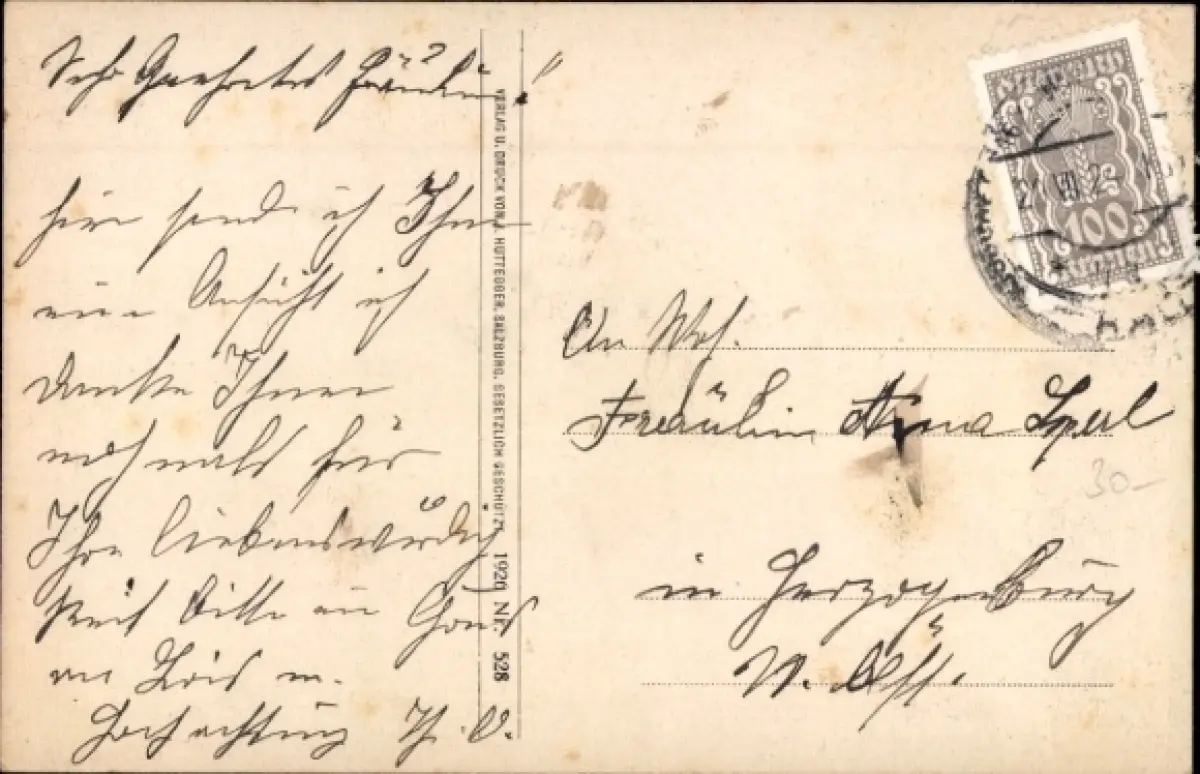 Sehr Geehrtes Fräulein!
hier send ich Ihnen
eine Ansicht ich
danke Ihnen
nochmals für
Ihre liebenswürdig
keit bitte ein Gruß
an Lois m.
Hochachtung Th. O.
VERLAG U. DRUCK VON J. HUTTEGGER, SALZBURG. GESETZLICH GESCHÜTZT. 1920 Nr. 528
100
KRONEN
An Woh.
Fräulein Anna Sperl
in Herzogenburg
N. Öst.
30-